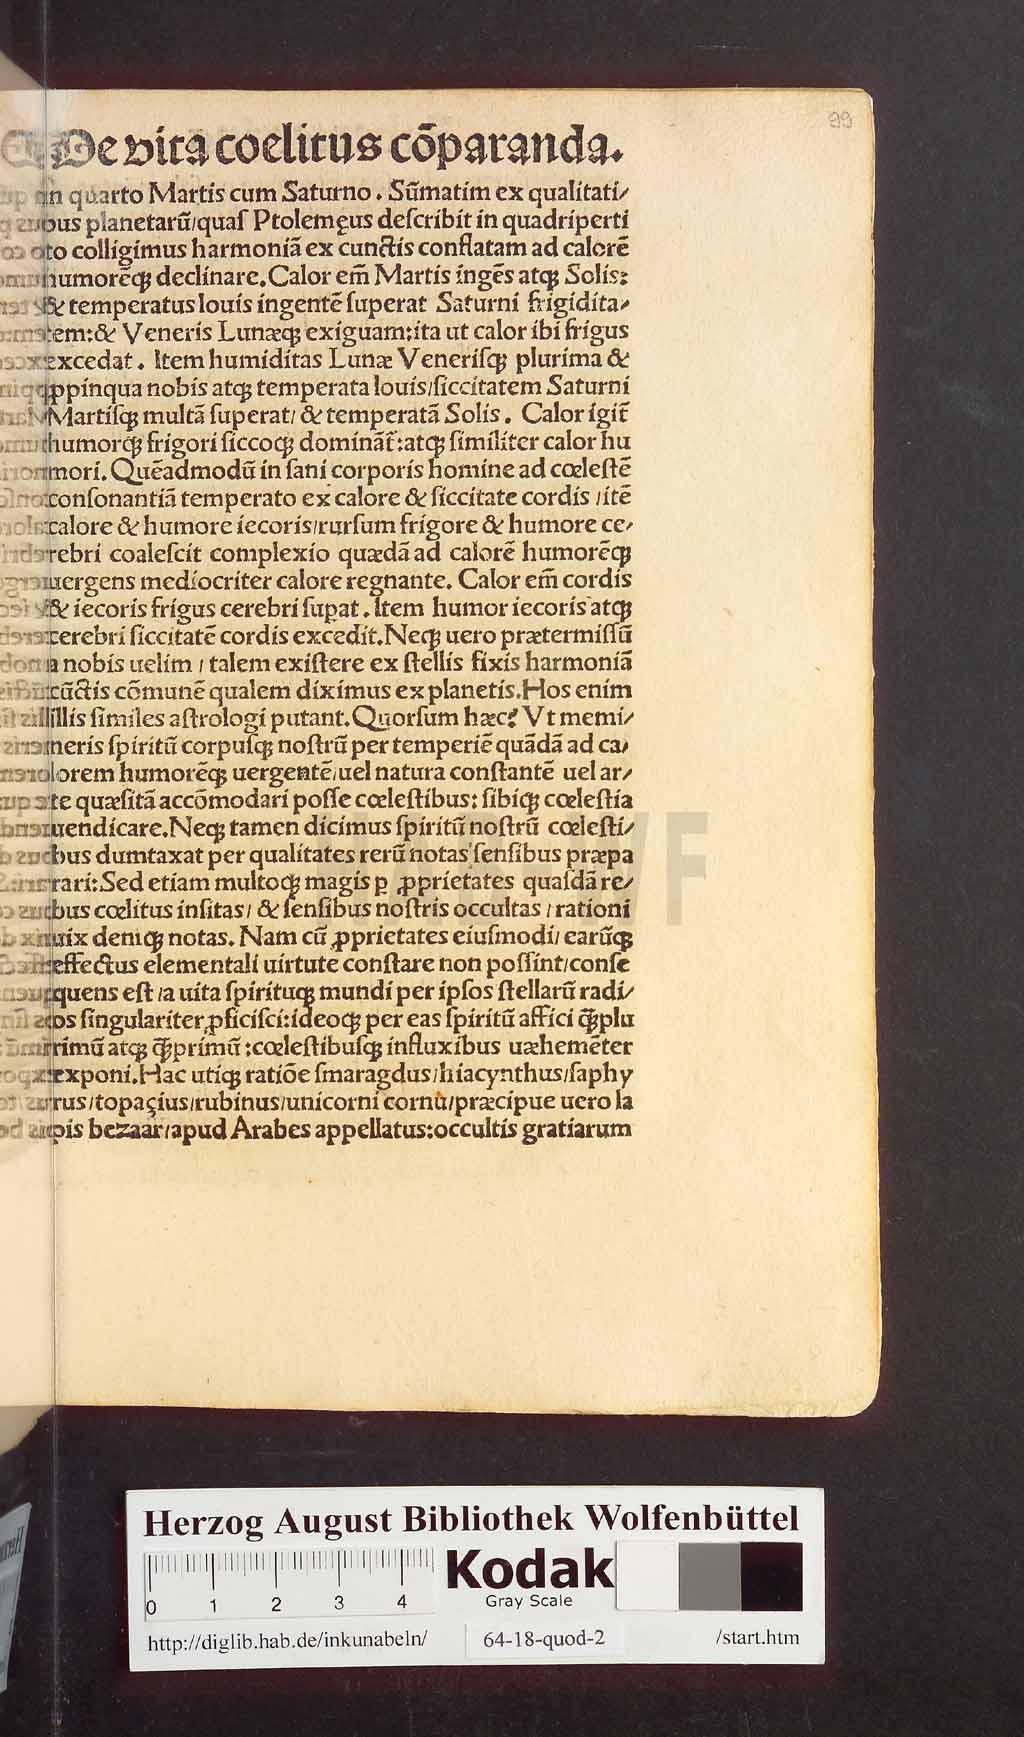 99
De vita coelitus cōparanda.
in quarto Martis cum Saturno. Sūmatim ex qualitati/
bus planetarū/quaſ Ptolemęus deſcribit in quadriperti
to colligimus harmoniā ex cunctis conflatam ad calorē
humorēq; declinare. Calor em̄ Martis ingēs atq; Solis:
& temperatus Iouis ingentē ſuperat Saturni frigidita/
tem:& Veneris Lunæq; exiguam:ita ut calor ibi frigus
excedat. Item humiditas Lunæ Veneriſq; plurima &
ꝓpinqua nobis atq; temperata Iouis/ſiccitatem Saturni
Martiſq; multā ſuperat/ & temperatā Solis. Calor igit̄
humorq; frigori ſiccoq; domināt̄:atq; ſimiliter calor hu
mori. Quēadmodū in ſani corporis homine ad cœleſtē
conſonantiā temperato ex calore & ſiccitate cordis /itē
calore & humore iecoris/rurſum frigore & humore ce/
rebri coaleſcit complexio quædā ad calorē humorēq;
uergens mediocriter calore regnante. Calor em̄ cordis
& iecoris frigus cerebri ſuꝑat. Item humor iecoris atq;
cerebri ſiccitatē cordis excedit. Neq; uero prætermiſſū
a nobis uelim / talem exiſtere ex ſtellis fixis harmoniā
cūctis cōmunē qualem diximus ex planetis. Hos enim
illis ſimiles aſtrologi putant. Quorſum hæc? Vt memi/
neris ſpiritū corpuſq; noſtrū per temperiē quādā ad ca/
lorem humorēq; uergentē/uel natura conſtantē uel ar/
te quæſitā accōmodari poſſe cœleſtibus: ſibiq; cœleſtia
uendicare. Neq; tamen dicimus ſpiritū noſtrū cœleſti/
bus dumtaxat per qualitates rerū notas ſenſibus præpa
rari: Sed etiam multoq; magis ꝑ ꝓprietates quaſdā re/
bus cœlitus inſitas/ & ſenſibus noſtris occultas / rationi
uix deniq; notas. Nam cū ꝓprietates eiuſmodi/ earūq;
effectus elementali uirtute conſtare non poſſint/conſe
quens eſt /a uita ſpirituq; mundi per ipſos ſtellarū radi/
os ſingulariter ꝓficiſci:ideoq; per eas ſpiritū affici q̄ꝫplu
rimū atq; q̄ꝫprimū :cœleſtibuſq; influxibus uæhemēter
exponi. Hac utiq; ratiōe ſmaragdus/hiacynthus/ſaphy
rus/topaçius/rubinus/unicorni cornu/præcipue uero la
pis bezaar/apud Arabes appellatus:occultis gratiarum
Herzog August Bibliothek Wolfenbüttel
0 1 2 3 4
Kodak
Gray Scale
http://diglib.hab.de/inkunabeln/ 64-18-quod-2 /start.htm